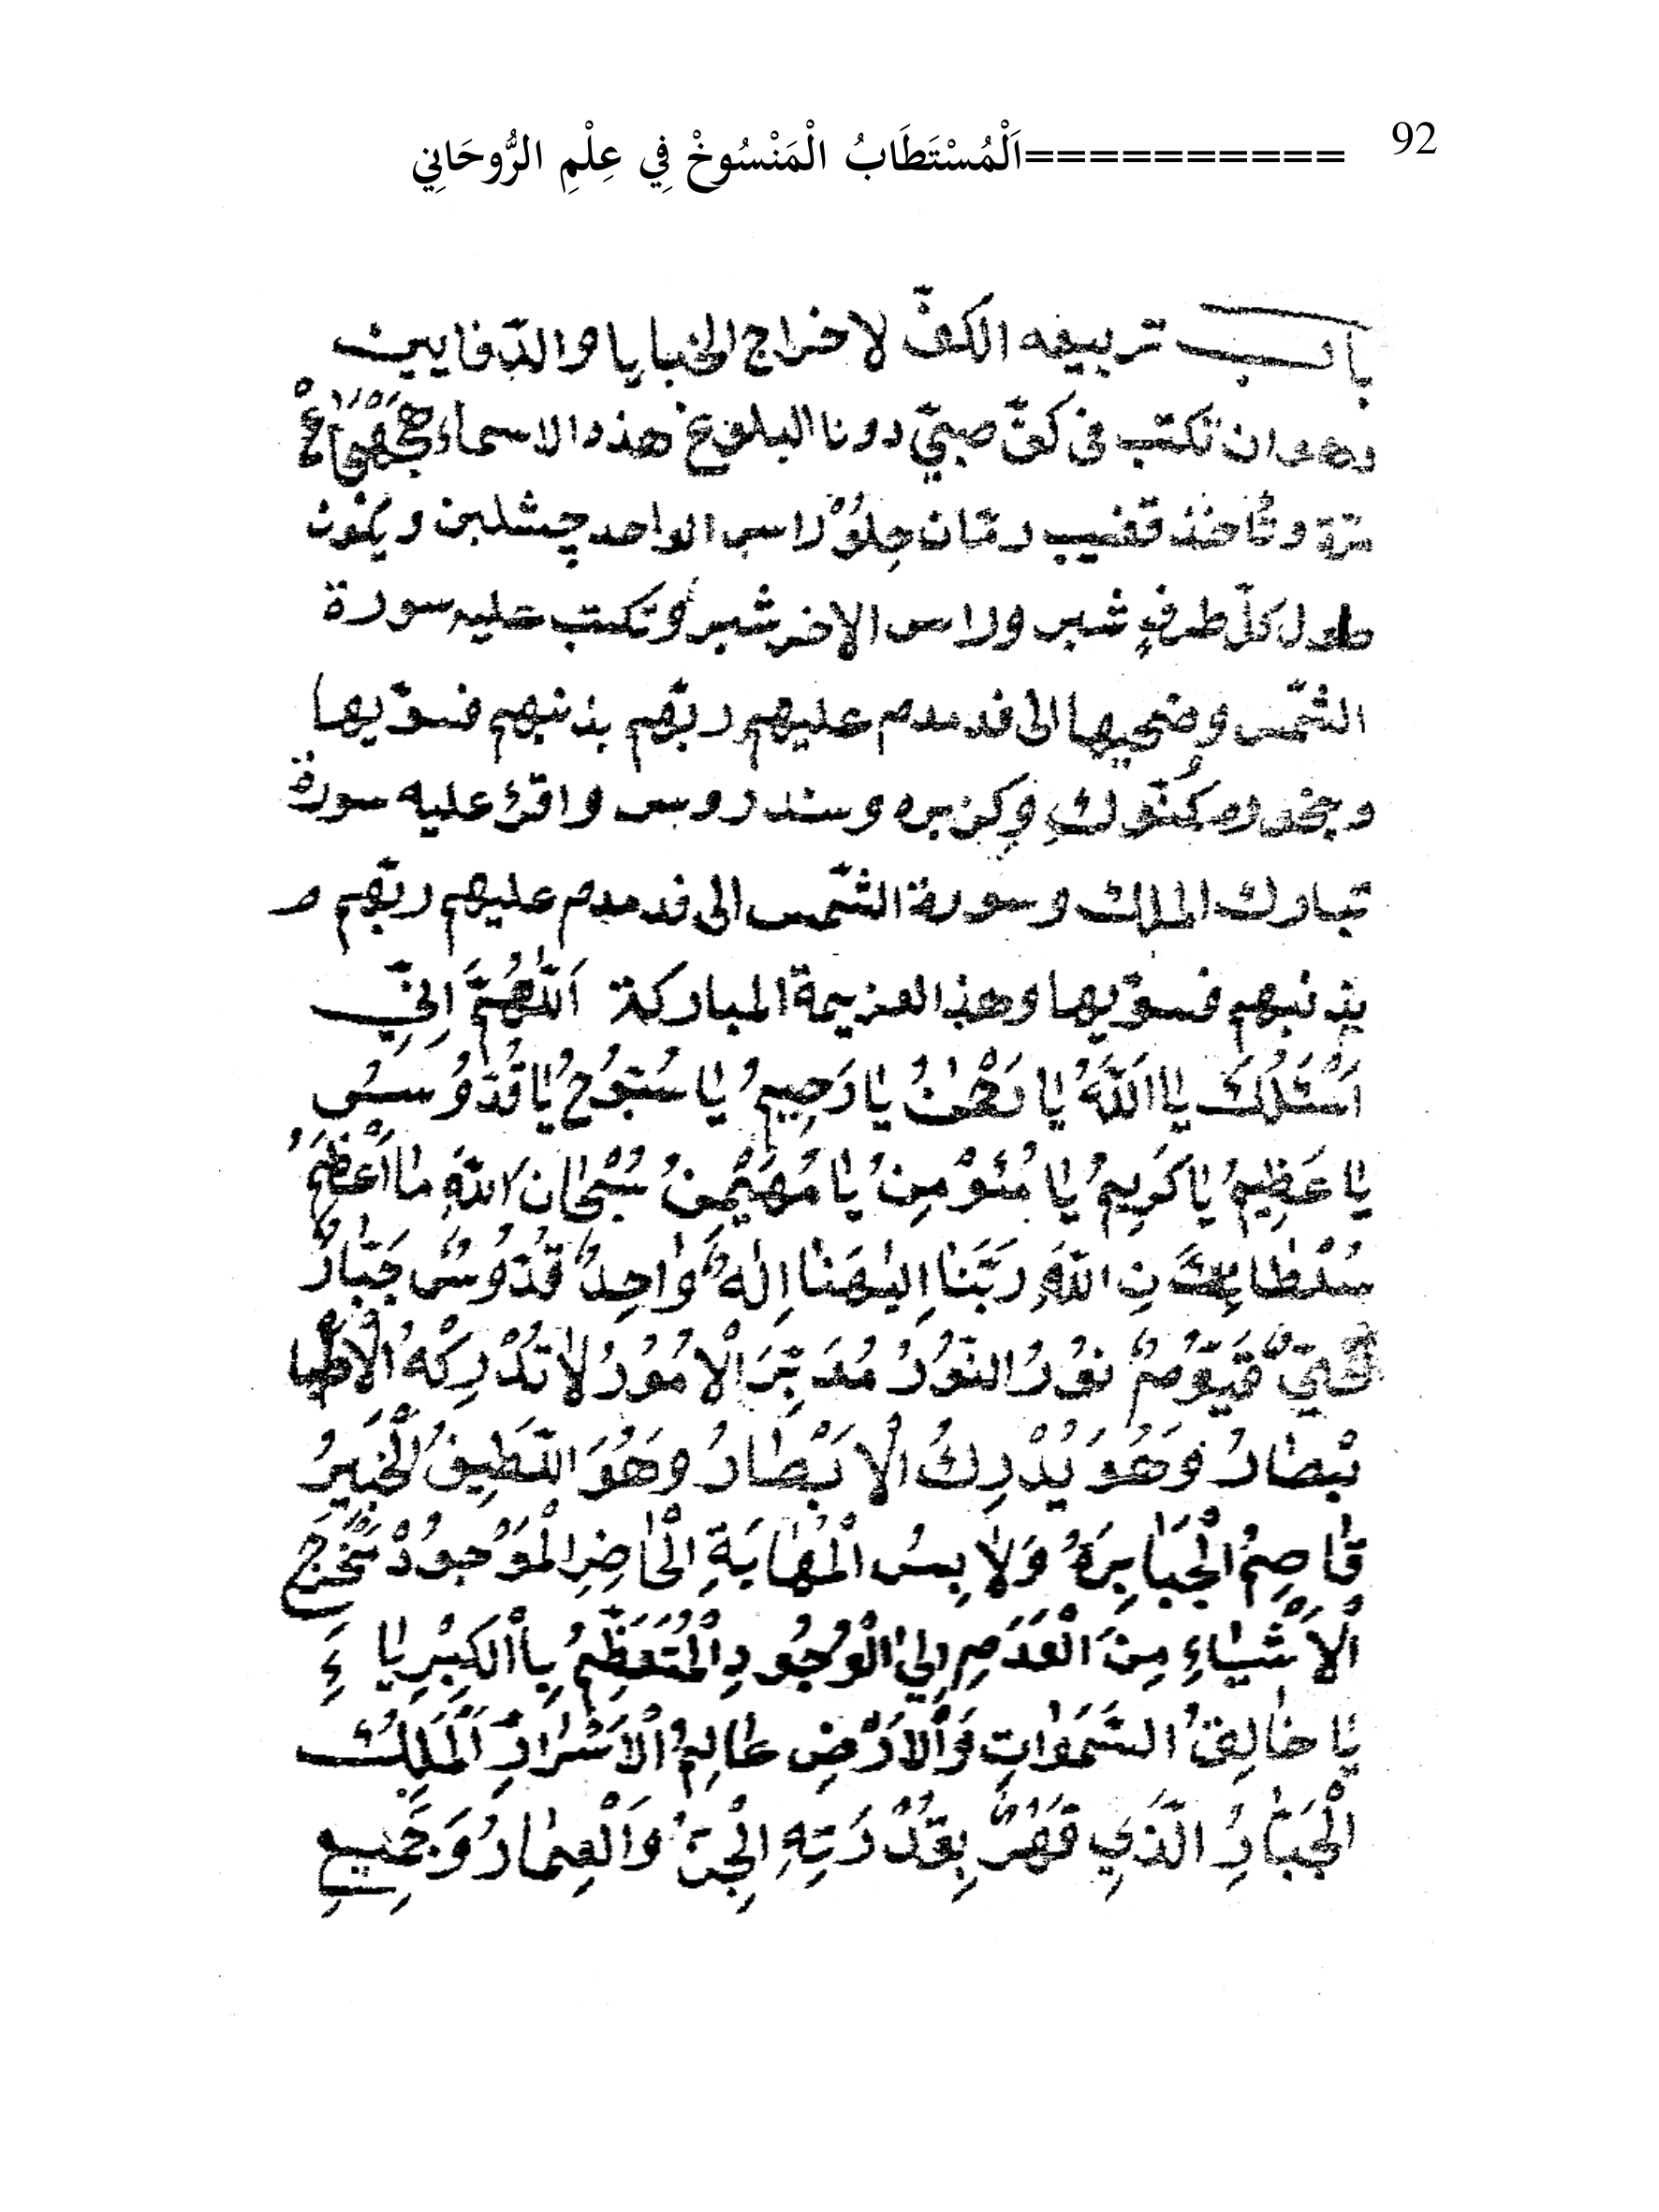 92 ==========اَلْمُسْتَطَابُ الْمَنْسُوخْ فِي عِلْمِ الرُّوحَانِي
باب تربيعه الكفّ لاخراج الخبايا والدّفايين
وهو ان تكتب فى كفّ صبيّ دونا البلوغ هذه الاسماء
مرّة وتأخذ قضيب رمّان حِلوٌ راس الواحد ويكون
طول كلّ طرفٍ شبر وراس الاخر شبر وتكتب عليه سورة
الشّمس وضحيها الى فدمدم عليهم ربّهم بذنبهم فسوّيها
وبخوره وكزبره وسندروس واقرئ عليه سورة
تبارك الملك وسورة الشّمس الى فدمدم عليهم ربّهم
بذنبهم فسوّيها وهذا العزيمة المباركة اَللّٰهُمَّ اِنِّي
اَسْئَلُكَ يٰا اَللّٰهُ يٰا رَحْمٰنُ يٰا رَحِيمُ يٰا سُبّوُحُ يٰا قُدّوُسُ
يٰا عَظِيمُ يٰا كَرِيمُ يٰا مُئوْمِنُ يٰا مُهَيْمِنُ سُبْحٰان اللّٰهِ مٰا اَعْظَمَ
اللّٰهِ رَبَّنٰا اِلٰهَنٰا اِلٰهٌ وٰاحِدٌ قُدّوُسٌ جَبّٰارٌ
حَيٌّ قَيّوُمٌ نوُرُ النّوُرُ مُدَبِّرَ الْاُموُرُ لٰا تُدْرِكْهُ
وَهُوَ يُدْرِكُ الْاَبْصٰارُ وَهُوَ اللَّطِيفُ الْخَبِيرُ
قٰاصِمُ الْجَبٰابِرَهُ وَلٰابِسُ الْمَهٰابَةِ الْحٰاضِرِ الْمَوْجوُدْ مُخْرِجُ
الْاَشْيٰاءِ مِنَ الْعَدَمِ اِلِيٰ الْوُجُودِ الْمُتَعَظِّمُ بِاْالكِبْرِيٰاءِ
يٰا خٰالِقُ السَّمَوٰاتِ وَالْاَرْضِ عٰالِمُ الْاَسْرٰارِ اَلْمَلِكُ
الْجَبّٰارُ الَّذِي قَهَرَ بِقُدْرَتِهِ الْجِنُّ وَالْعِمٰارُ وَجَمِيعِ